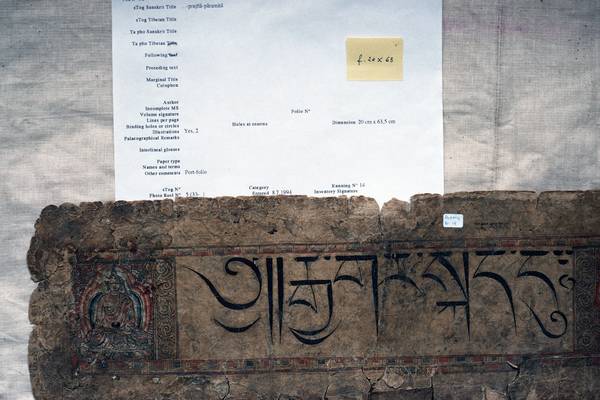 sTog Sanskrit Title ...-prajñā-pāramitā
sTog Tibetan Title
Ta pho Sanskrit Title
Ta pho Tibetan Title
Following text
Preceding text
Marginal Title
Colophon
Author
Incomplete MS
Volume signature
Folio N°
Lines per page
Binding holes or circles
Holes at centre
Dimension 20 cm x 63,5 cm
Illustrations Yes, 2
Palaeographical Remarks
Interlineal glosses
Paper type
Names and terms
Other comments Port-folio
sTog N°
Category
Running N° 14
Photo Roll N° 5 (33- )
Entered 8.7.1994
Inventory Signature
f. 20 x 63
༄།།རྒྱ་གར་སྐད་དུ༔